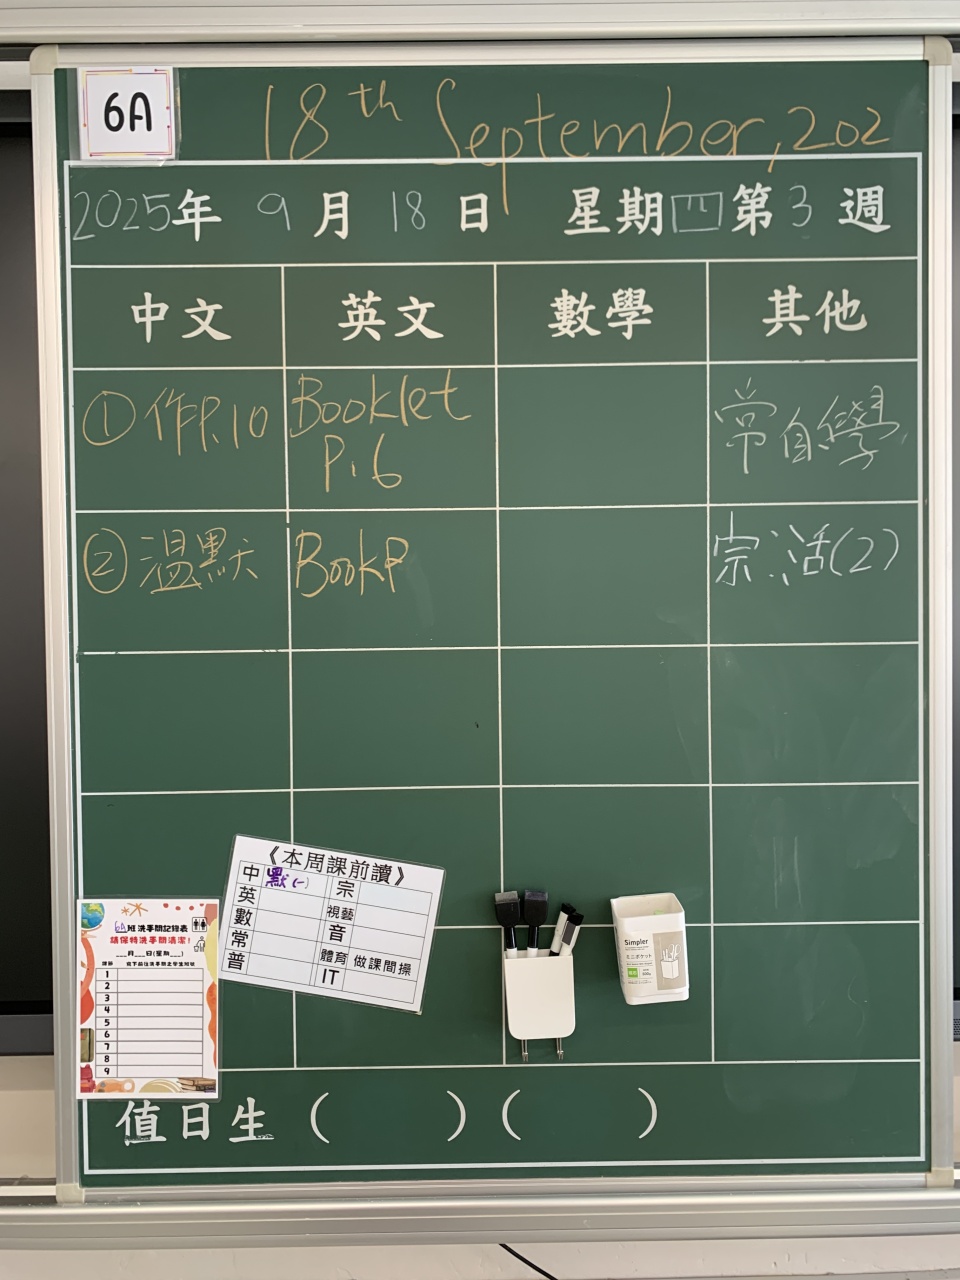 6A
18th September, 202
2025年 9月 18日 星期四第3週
中文 英文 數學 其他
①作P.10 Booklet P.6 常自學
②溫默 BookP 宗:活(2)
《本周課前讀》
中 默(一) 宗
英 視藝
數 音
常 體育 做課間操
普 IT
6A班洗手間記錄表
請保持洗手間清潔!
___月___日(星期___)
1
2
3
4
5
6
7
8
9
Simpler
ミニポケット
值日生 ( ) ( )